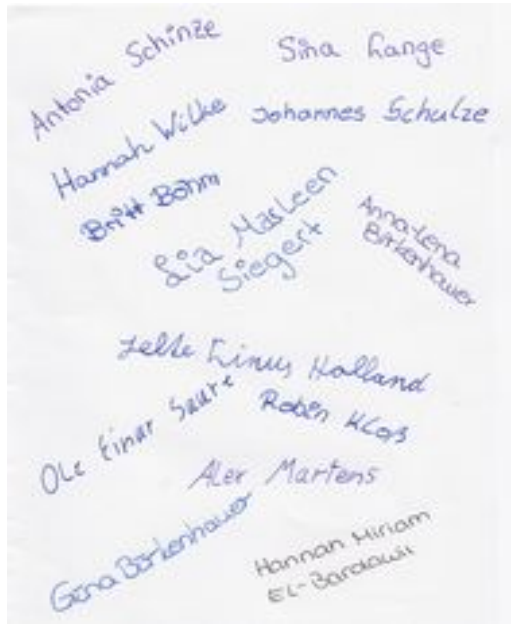 Antonia Schinze
Sina Lange
Hannah Wilke
Johannes Schulze
Britt Böhm
Lia Marleen
Siegert
Anna-Lena
Birkenhauer
Jelte Linus Holland
Ole Einar Saure
Robin Klars
Alex Martens
Gina Birkenhauer
Hannah Miriam
El-Bardawil